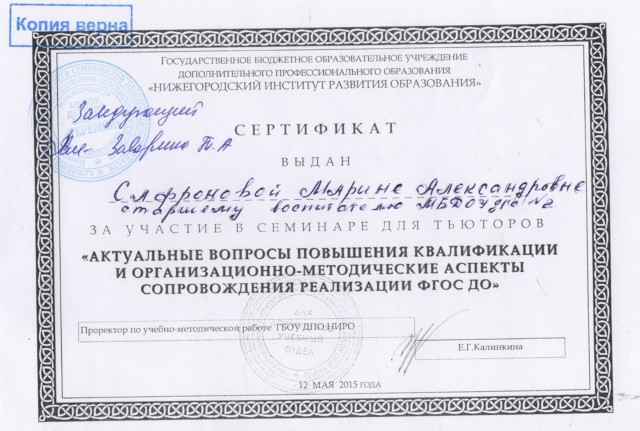 Копия верна
ГОСУДАРСТВЕННОЕ БЮДЖЕТНОЕ ОБРАЗОВАТЕЛЬНОЕ УЧРЕЖДЕНИЕ
ДОПОЛНИТЕЛЬНОГО ПРОФЕССИОНАЛЬНОГО ОБРАЗОВАНИЯ
«НИЖЕГОРОДСКИЙ ИНСТИТУТ РАЗВИТИЯ ОБРАЗОВАНИЯ»
Заведующий
Т.А
СЕРТИФИКАТ
ВЫДАН
Сафроновой Марине Александровне
старшему воспитателю МБДОУ д/с №2
ЗА УЧАСТИЕ В СЕМИНАРЕ ДЛЯ ТЬЮТОРОВ
«АКТУАЛЬНЫЕ ВОПРОСЫ ПОВЫШЕНИЯ КВАЛИФИКАЦИИ
И ОРГАНИЗАЦИОННО-МЕТОДИЧЕСКИЕ АСПЕКТЫ
СОПРОВОЖДЕНИЯ РЕАЛИЗАЦИИ ФГОС ДО»
ДЛЯ
Проректор по учебно-методической работе ГБОУ ДПО НИРО
УЧЕБНЫЙ
ОТДЕЛ
Е.Г.Калинкина
12 МАЯ 2015 ГОДА